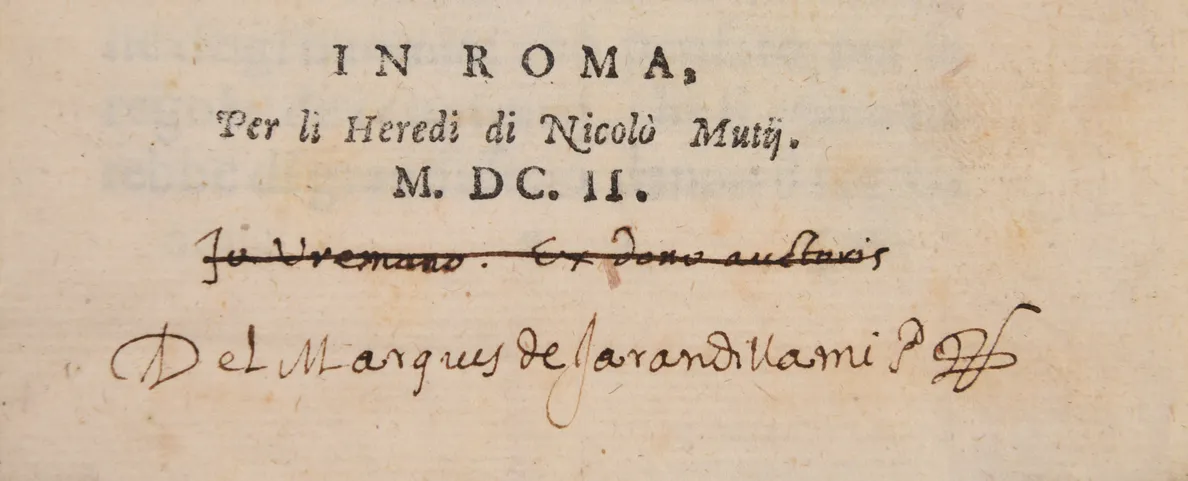 IN ROMA,
Per li Heredi di Nicolò Mutij.
M. DC. II.
Jo Vremano. Ex dono auctoris
Del Marques de Jarandilla mi P